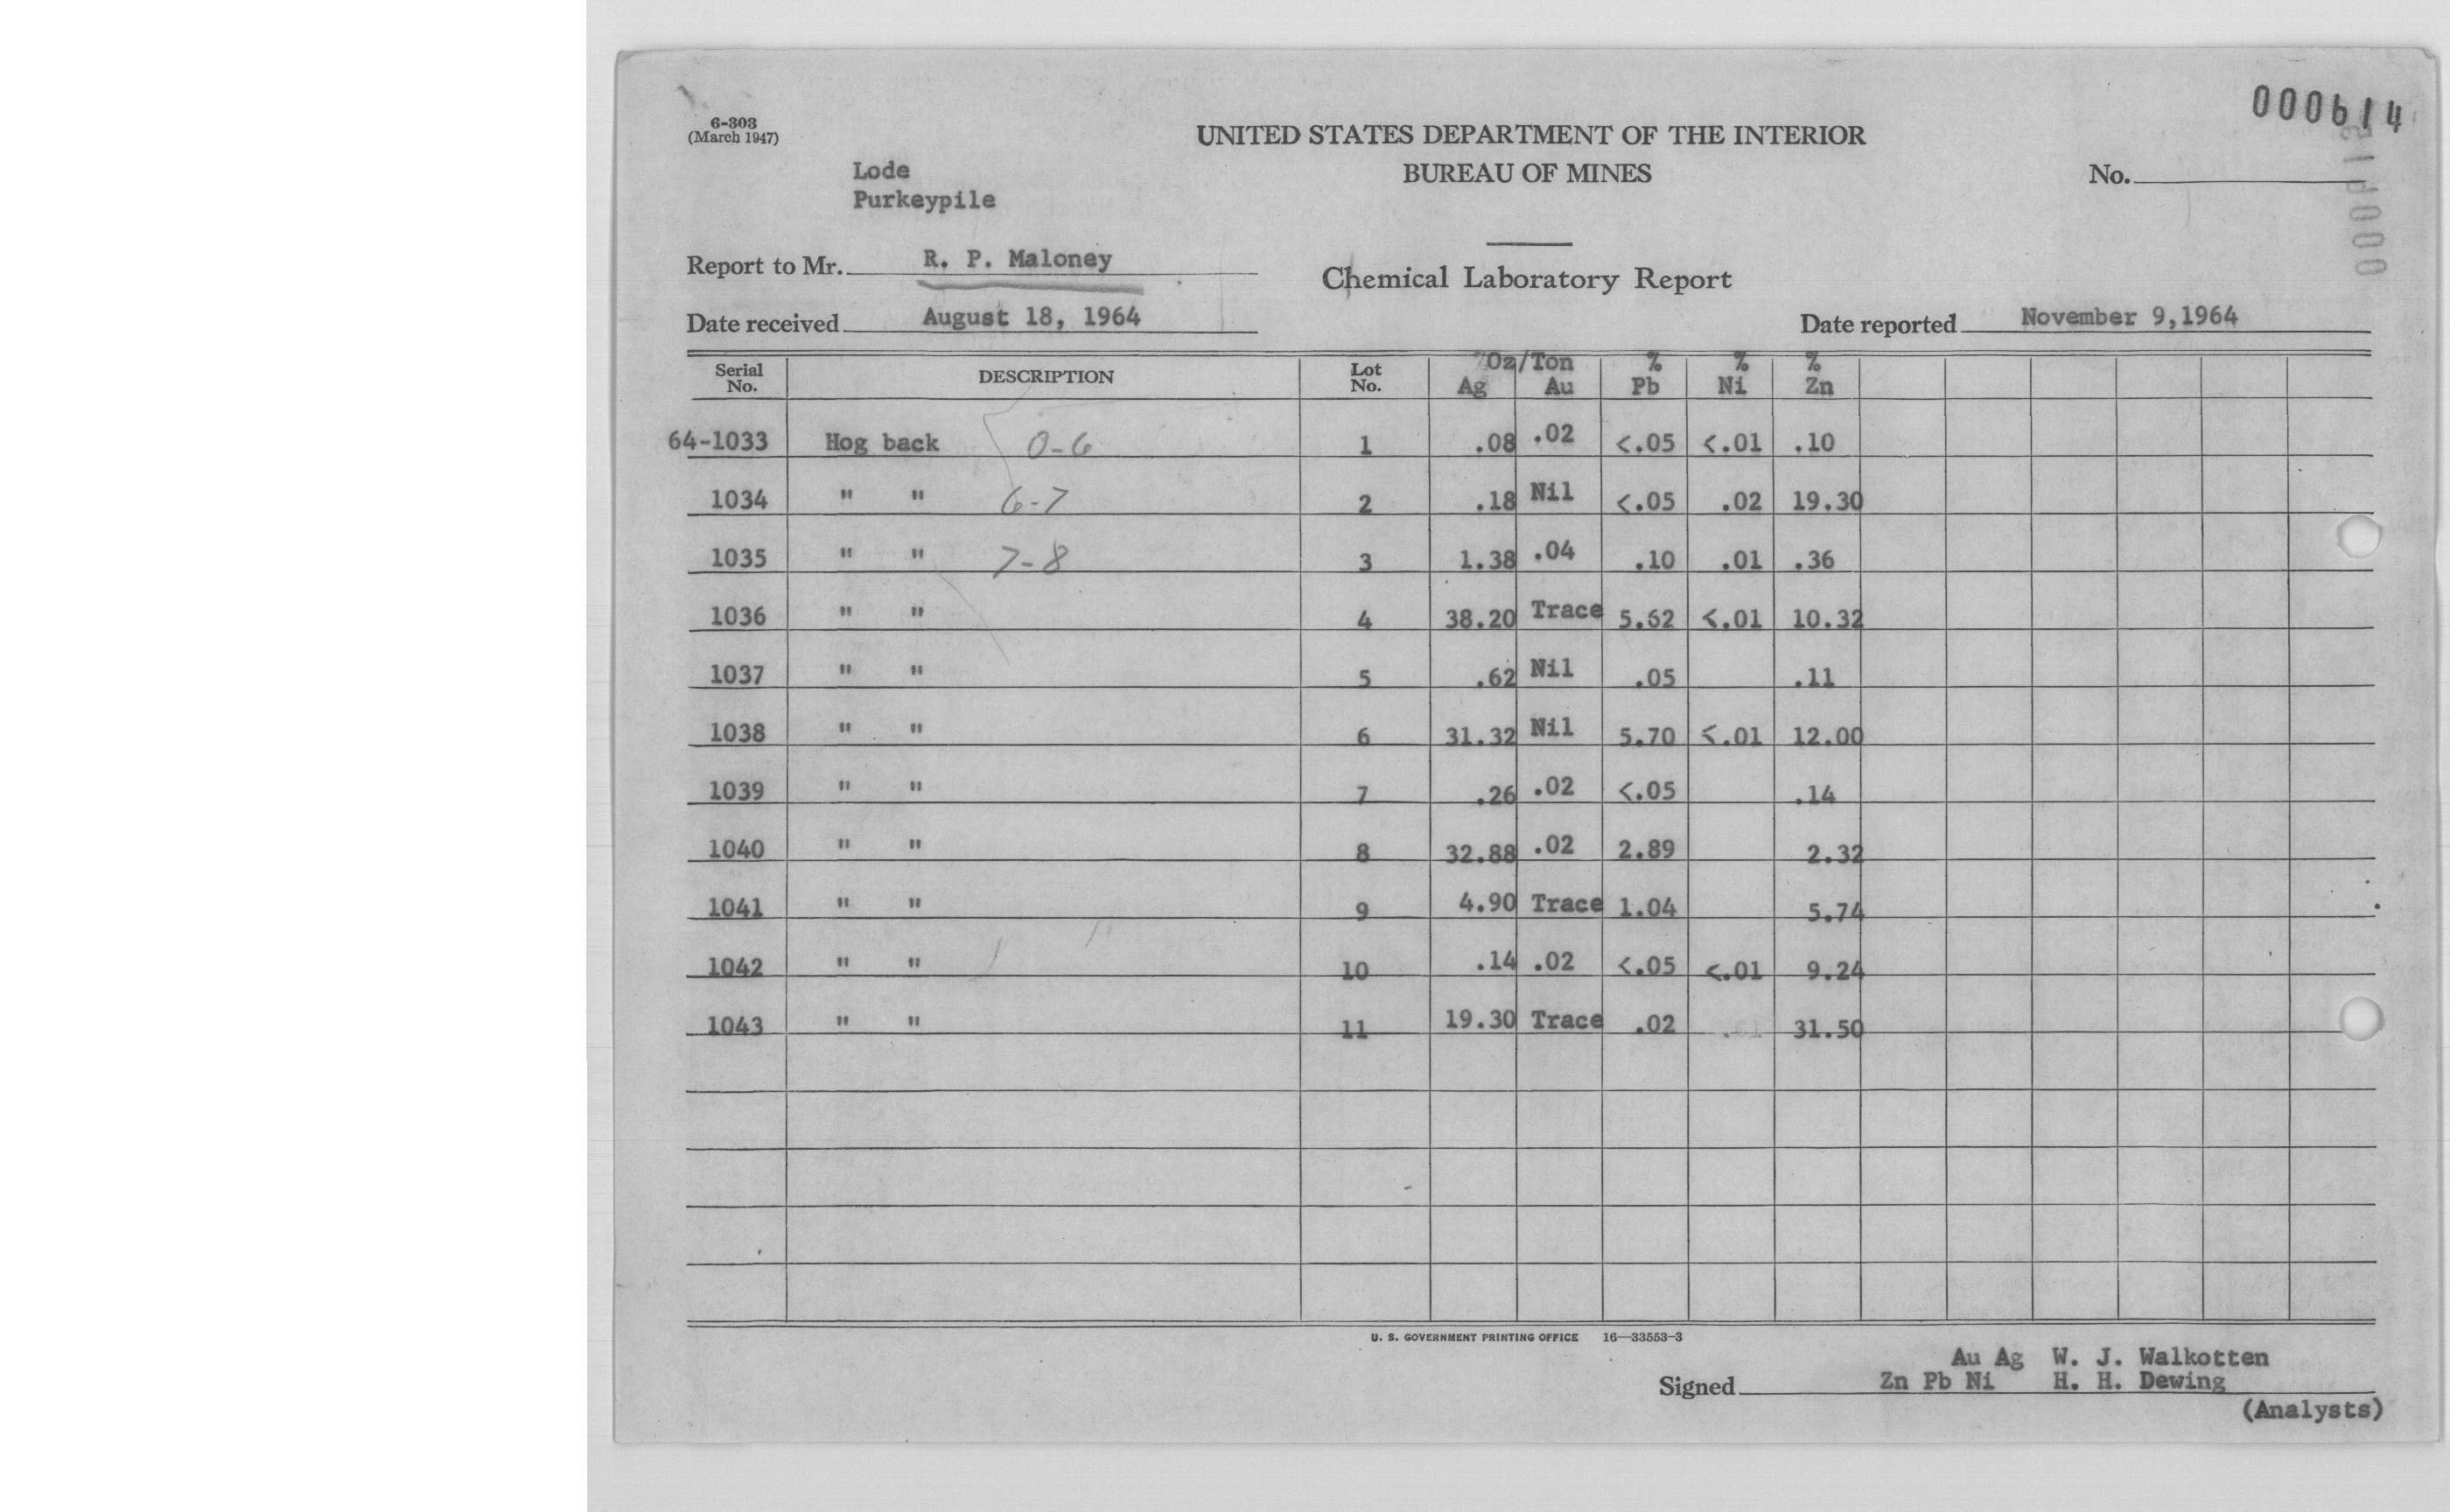 000614
6-303
(March 1947)
UNITED STATES DEPARTMENT OF THE INTERIOR
BUREAU OF MINES
No.
Lode
Purkeypile
Report to Mr. R. P. Maloney
Chemical Laboratory Report
Date received August 18, 1964
Date reported November 9,1964
Serial No. DESCRIPTION Lot No. Oz/Ton Ag Au % Pb % Ni % Zn
64-1033 Hog back 0-6 1 .08 .02 <.05 <.01 .10
1034 " " 6-7 2 .18 Nil <.05 .02 19.30
1035 " " 7-8 3 1.38 .04 .10 .01 .36
1036 " " 4 38.20 Trace 5.62 <.01 10.32
1037 " " 5 .62 Nil .05 .11
1038 " " 6 31.32 Nil 5.70 <.01 12.00
1039 " " 7 .26 .02 <.05 .14
1040 " " 8 32.88 .02 2.89 2.32
1041 " " 9 4.90 Trace 1.04 5.74
1042 " " 10 .14 .02 <.05 <.01 9.24
1043 " " 11 19.30 Trace .02 31.50
U. S. GOVERNMENT PRINTING OFFICE 16—33553-3
Au Ag W. J. Walkotten
Signed Zn Pb Ni H. H. Dewing
(Analysts)